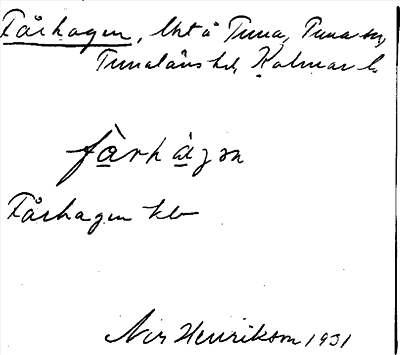 Fårhagen, lht å Tuna, Tuna sn,
Tunaläns hd, Kalmar l.
fàrhàgən
Fårhagen kb
Ivar Henrikson 1931